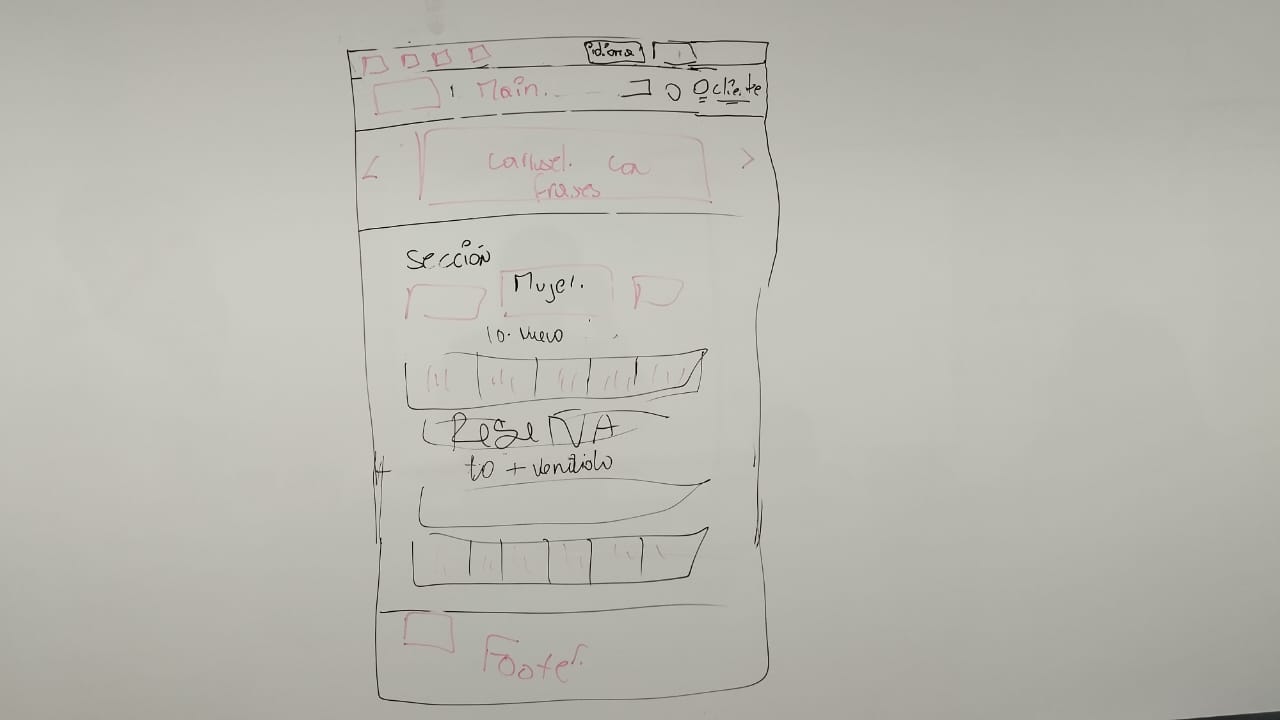 idioma
Main.
cliente
< carrusel. con >
frases
Sección
Mujer.
lo nuevo
ReseRVA
lo + vendido
Footer.